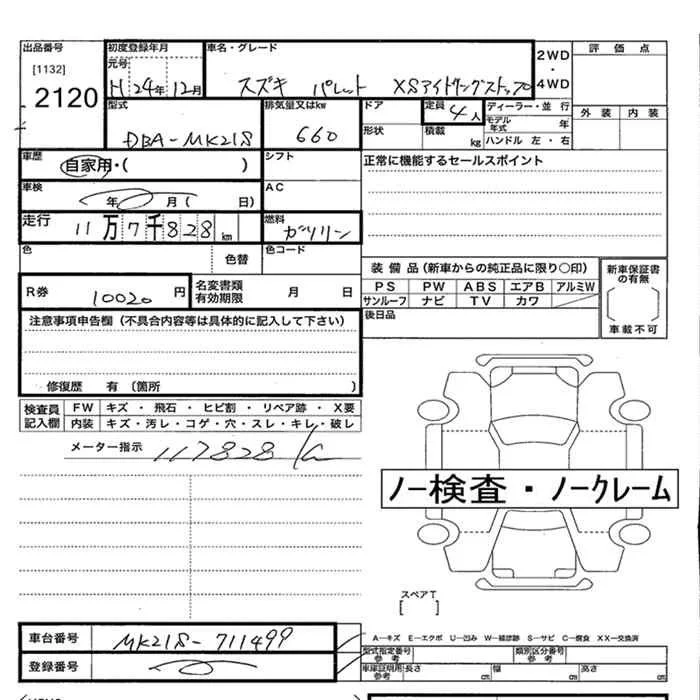 出品番号 初度登録年月 車名・グレード 2WD ・ 4WD 評価点
[1132] 元号
2120 H 24年 12月 スズキ パレット XSアイドリングストップ
型式 排気量又はkw ドア 定員 4人 ディーラー・並行 外装 内装
DBA-MK21S 660 形状 積載 kg モデル年式 年
ハンドル 左・右
車歴 自家用・( ) シフト 正常に機能するセールスポイント
車検 年 月( 日) AC
走行 11万7千828km 燃料 ガソリン
色 色替 色コード
装備品(新車からの純正品に限り○印) 新車保証書の有無
R券 10020円 名変書類有効期限 月 日 PS PW ABS エアB アルミW
サンルーフ ナビ TV カワ
[ ]
車載不可
注意事項申告欄(不具合内容等は具体的に記入して下さい) 後日品
修復歴 有(箇所 )
検査員記入欄 FW キズ・飛石・ヒビ割・リペア跡・X要
内装 キズ・汚レ・コゲ・穴・スレ・キレ・破レ
メーター指示 117828
ノー検査・ノークレーム
スペアT
[ ]
車台番号 MK21S-711499 A-キズ E-エクボ U-凹み W-補修跡 S-サビ C-腐食 XX-交換済
型式指定番号 参考 類別区分番号 参考
登録番号 車庫証明用 参考 長さ cm 幅 cm 高さ cm